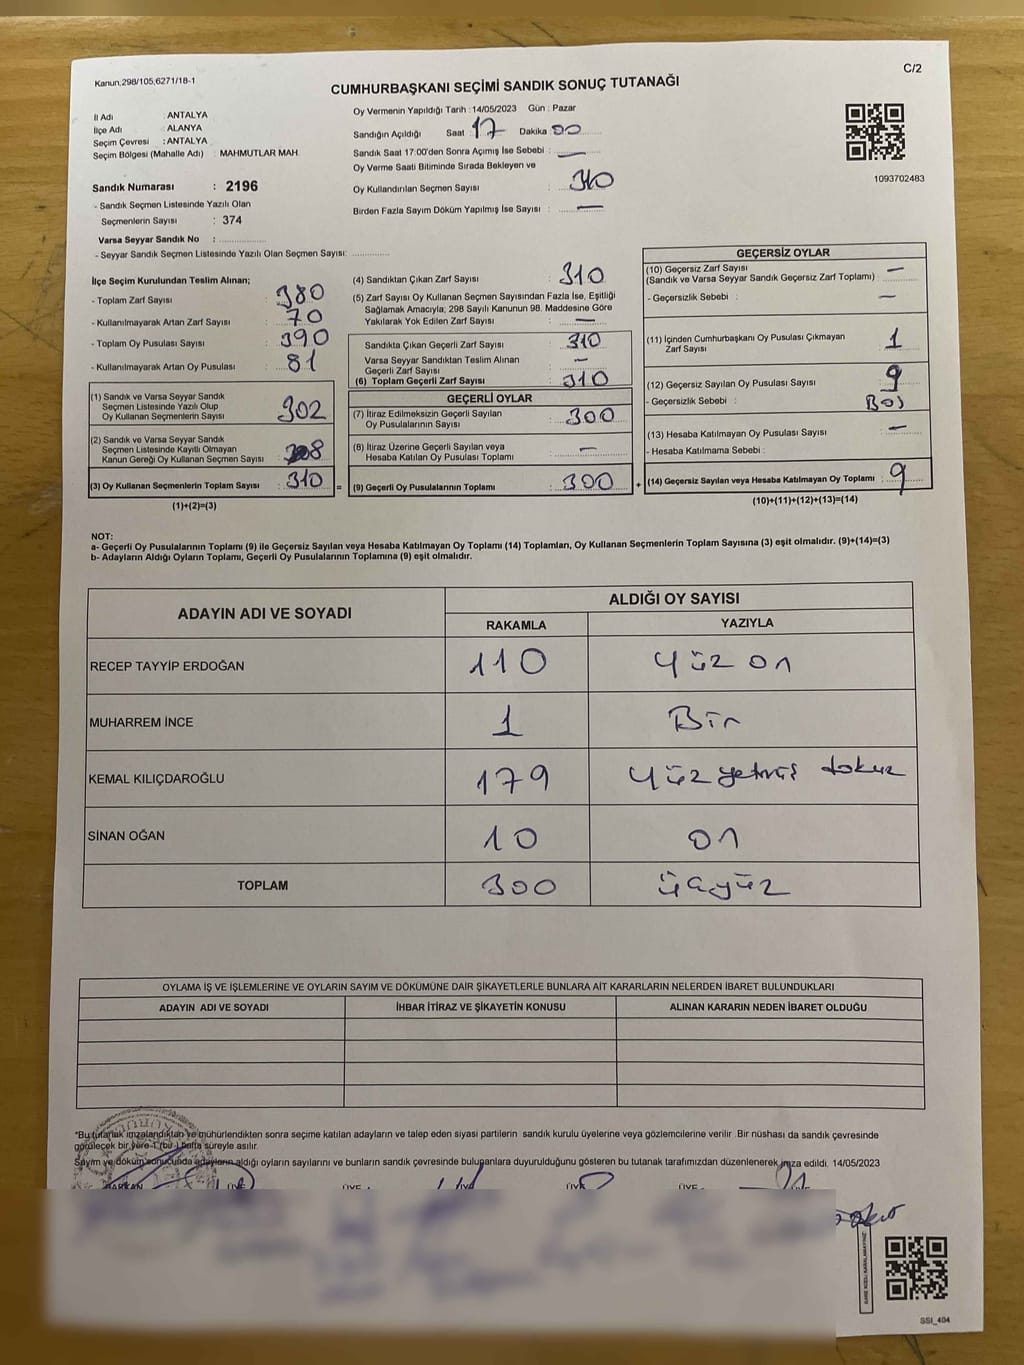 Kanun,298/105,6271/18-1
C/2
CUMHURBAŞKANI SEÇİMİ SANDIK SONUÇ TUTANAĞI
İl Adı : ANTALYA
İlçe Adı : ALANYA
Seçim Çevresi : ANTALYA
Seçim Bölgesi (Mahalle Adı) : MAHMUTLAR MAH.
Sandık Numarası : 2196
- Sandık Seçmen Listesinde Yazılı Olan
Seçmenlerin Sayısı : 374
Varsa Seyyar Sandık No :
- Seyyar Sandık Seçmen Listesinde Yazılı Olan Seçmen Sayısı:
Oy Vermenin Yapıldığı Tarih : 14/05/2023 Gün : Pazar
Sandığın Açıldığı Saat : 17 Dakika 00
Sandık Saat 17:00'den Sonra Açımış İse Sebebi : —
Oy Verme Saati Bitiminde Sırada Bekleyen ve
Oy Kullandırılan Seçmen Sayısı : 310
Birden Fazla Sayım Döküm Yapılmış İse Sayısı : —
1093702483
İlçe Seçim Kurulundan Teslim Alınan;
- Toplam Zarf Sayısı : 380
- Kullanılmayarak Artan Zarf Sayısı : 70
- Toplam Oy Pusulası Sayısı : 390
- Kullanılmayarak Artan Oy Pusulası : 81
(1) Sandık ve Varsa Seyyar Sandık
Seçmen Listesinde Yazılı Olup
Oy Kullanan Seçmenlerin Sayısı : 302
(2) Sandık ve Varsa Seyyar Sandık
Seçmen Listesinde Kayıtlı Olmayan
Kanun Gereği Oy Kullanan Seçmen Sayısı : 8
(3) Oy Kullanan Seçmenlerin Toplam Sayısı : 310
(1)+(2)=(3)
(4) Sandıktan Çıkan Zarf Sayısı : 310
(5) Zarf Sayısı Oy Kullanan Seçmen Sayısından Fazla İse, Eşitliği
Sağlamak Amacıyla; 298 Sayılı Kanunun 98. Maddesine Göre
Yakılarak Yok Edilen Zarf Sayısı : —
Sandıkta Çıkan Geçerli Zarf Sayısı : 310
Varsa Seyyar Sandıktan Teslim Alınan
Geçerli Zarf Sayısı : —
(6) Toplam Geçerli Zarf Sayısı : 310
GEÇERLİ OYLAR
(7) İtiraz Edilmeksizin Geçerli Sayılan
Oy Pusulalarının Sayısı : 300
(8) İtiraz Üzerine Geçerli Sayılan veya
Hesaba Katılan Oy Pusulası Toplamı : —
= (9) Geçerli Oy Pusulalarının Toplamı : 300 +
GEÇERSİZ OYLAR
(10) Geçersiz Zarf Sayısı : —
(Sandık ve Varsa Seyyar Sandık Geçersiz Zarf Toplamı)
- Geçersizlik Sebebi : —
(11) İçinden Cumhurbaşkanı Oy Pusulası Çıkmayan
Zarf Sayısı : 1
(12) Geçersiz Sayılan Oy Pusulası Sayısı : 9
- Geçersizlik Sebebi : Boş
(13) Hesaba Katılmayan Oy Pusulası Sayısı : —
- Hesaba Katılmama Sebebi :
(14) Geçersiz Sayılan veya Hesaba Katılmayan Oy Toplamı : 9
(10)+(11)+(12)+(13)=(14)
NOT:
a- Geçerli Oy Pusulalarının Toplamı (9) ile Geçersiz Sayılan veya Hesaba Katılmayan Oy Toplamı (14) Toplamları, Oy Kullanan Seçmenlerin Toplam Sayısına (3) eşit olmalıdır. (9)+(14)=(3)
b- Adayların Aldığı Oyların Toplamı, Geçerli Oy Pusulalarının Toplamına (9) eşit olmalıdır.
ADAYIN ADI VE SOYADI
ALDIĞI OY SAYISI
RAKAMLA YAZIYLA
RECEP TAYYİP ERDOĞAN 110 yüz on
MUHARREM İNCE 1 Bir
KEMAL KILIÇDAROĞLU 179 yüz yetmiş dokuz
SİNAN OĞAN 10 on
TOPLAM 300 üçyüz
OYLAMA İŞ VE İŞLEMLERİNE VE OYLARIN SAYIM VE DÖKÜMÜNE DAİR ŞİKAYETLERLE BUNLARA AİT KARARLARIN NELERDEN İBARET BULUNDUKLARI
ADAYIN ADI VE SOYADI İHBAR İTİRAZ VE ŞİKAYETİN KONUSU ALINAN KARARIN NEDEN İBARET OLDUĞU
*Bu tutanak imzalandıktan ve mühürlendikten sonra seçime katılan adayların ve talep eden siyasi partilerin sandık kurulu üyelerine veya gözlemcilerine verilir .Bir nüshası da sandık çevresinde
görülecek bir yere 1 (bir) hafta süreyle asılır.
Sayım ve döküm sonucunda adayların aldığı oyların sayılarını ve bunların sandık çevresinde bulunanlara duyurulduğunu gösteren bu tutanak tarafımızdan düzenlenerek imza edildi. 14/05/2023
BAŞKAN ÜYE ÜYE ÜYE ÜYE
SSI_404